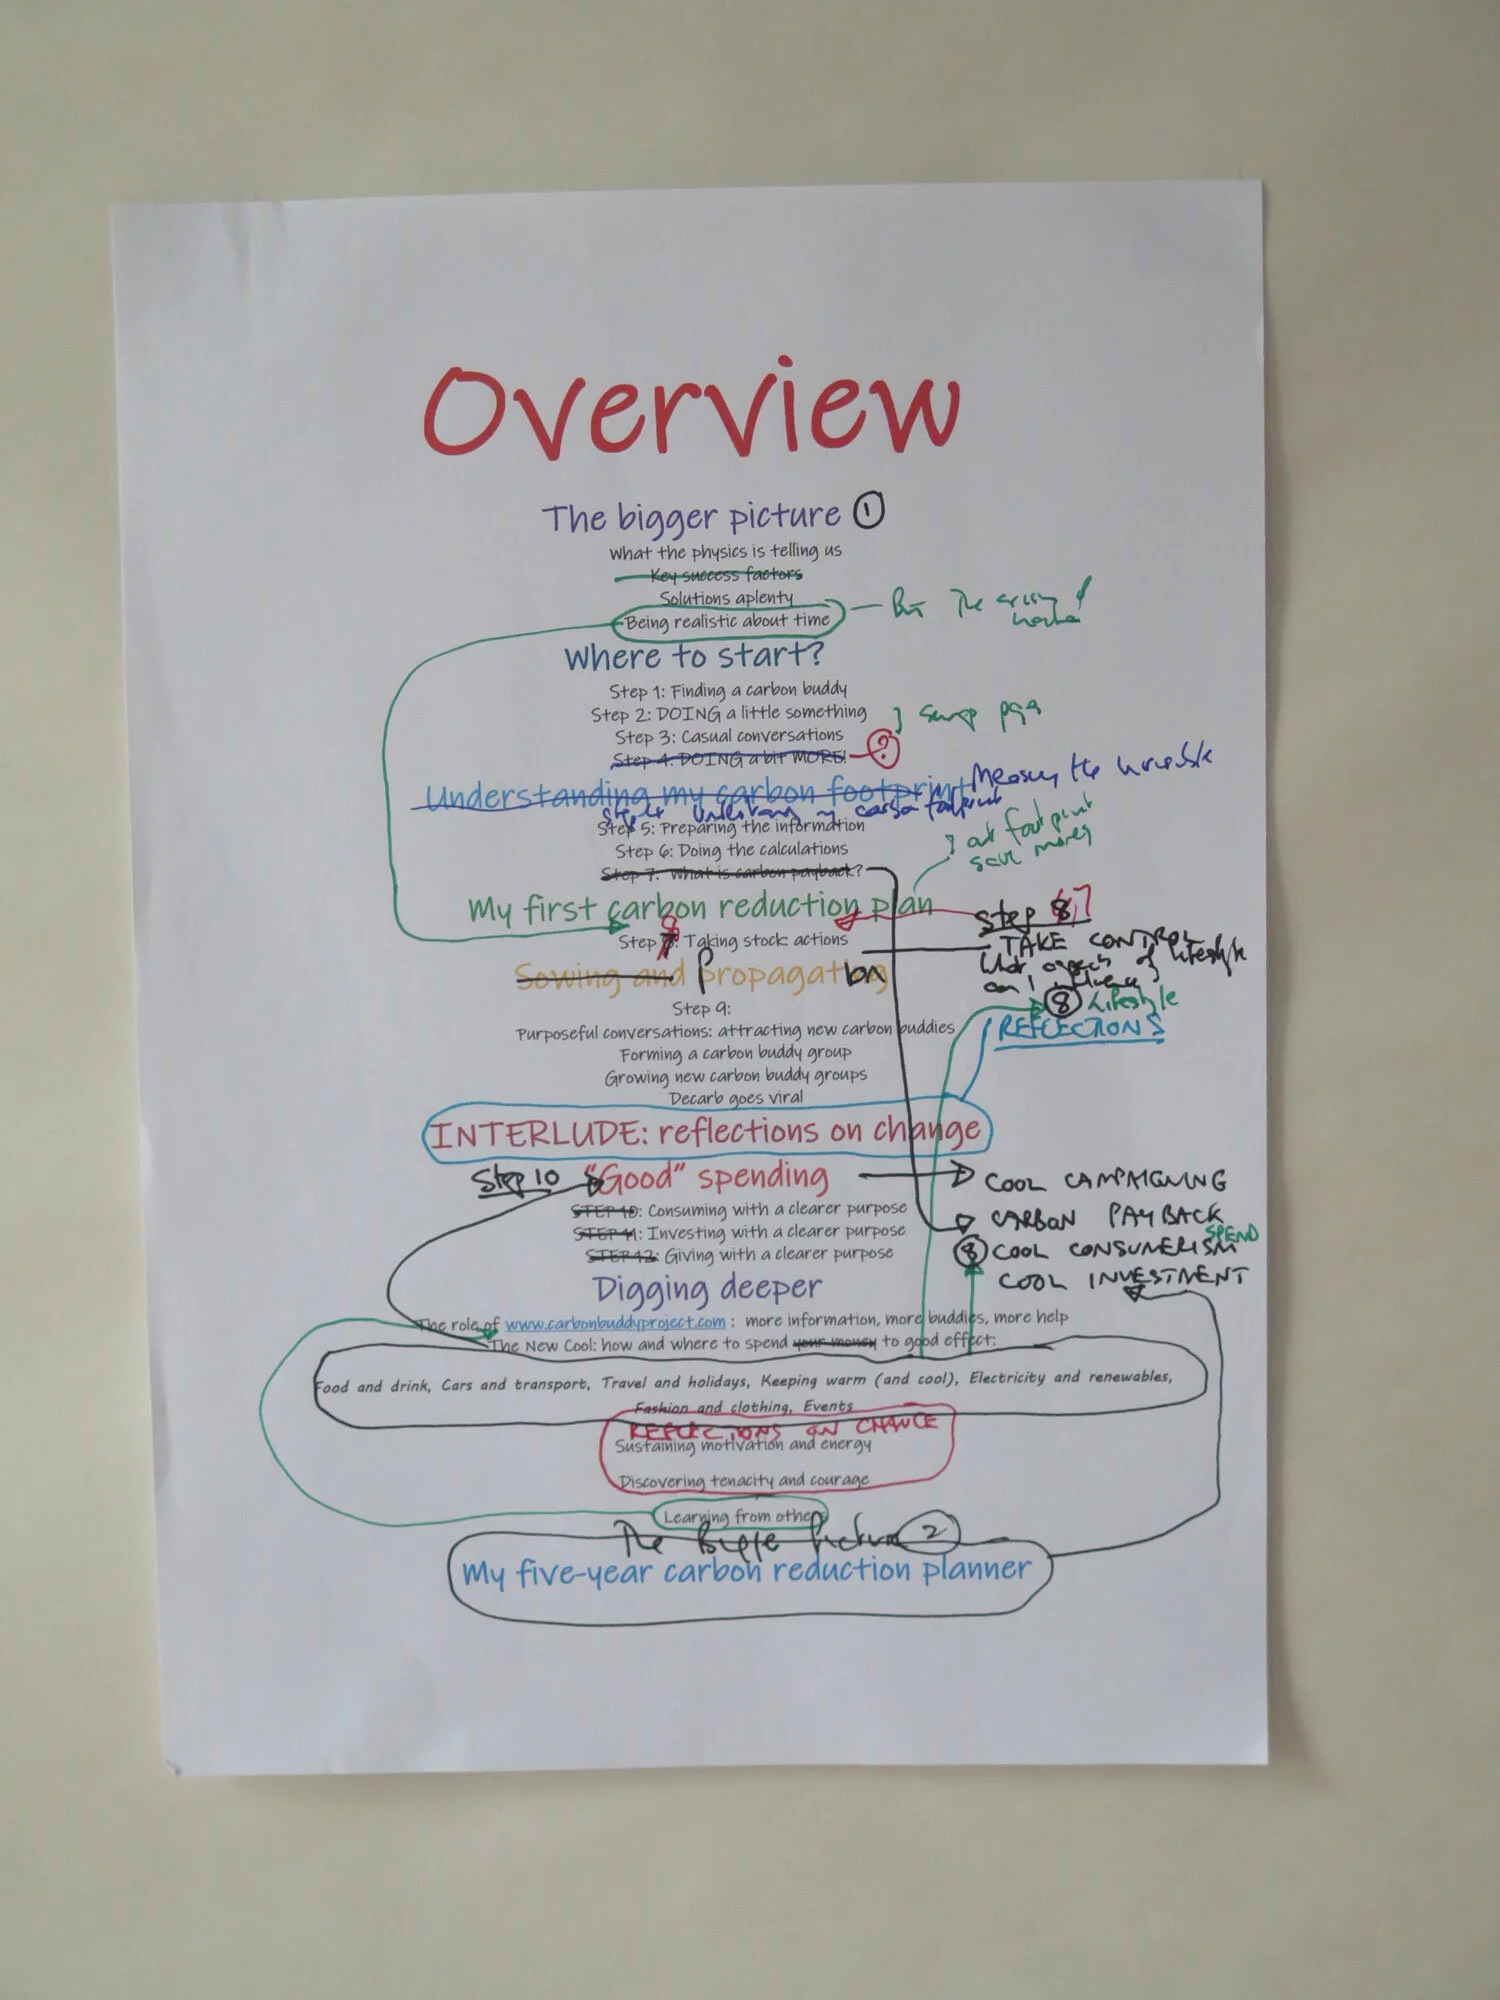 Overview
The bigger picture 1
What the physics is telling us
Key success factors
Solutions aplenty
Being realistic about time
But The
Where to start?
Step 1: Finding a carbon buddy
Step 2: DOING a little something
Step 3: Casual conversations
Step 4: DOING a bit MORE! ?
Understanding my carbon footprint
Step 4 Understanding my carbon footprint
Step 5: Preparing the information
Step 6: Doing the calculations
footprint
save money
Step 7: What is carbon payback?
My first carbon reduction plan
Step 8, 7
Step 8: Taking stock: actions
TAKE CONTROL
What aspects of lifestyle
can I influence?
Sowing and propagating
8 Lifestyle
REFLECTIONS
Step 9:
Purposeful conversations: attracting new carbon buddies
Forming a carbon buddy group
Growing new carbon buddy groups
Decarb goes viral
INTERLUDE: reflections on change
Step 10 "Good" spending
COOL CAMPAIGNING
STEP 10: Consuming with a clearer purpose
CARBON PAYBACK
STEP 11: Investing with a clearer purpose
SPEND
8 COOL CONSUMERISM
STEP 12: Giving with a clearer purpose
COOL INVESTMENT
Digging deeper
The role of www.carbonbuddyproject.com : more information, more buddies, more help
The New Cool: how and where to spend your money to good effect:
Food and drink, Cars and transport, Travel and holidays, Keeping warm (and cool), Electricity and renewables,
Fashion and clothing, Events
REFLECTIONS ON CHANGE
Sustaining motivation and energy
Discovering tenacity and courage
Learning from others
The Bigger Picture 2
My five-year carbon reduction planner